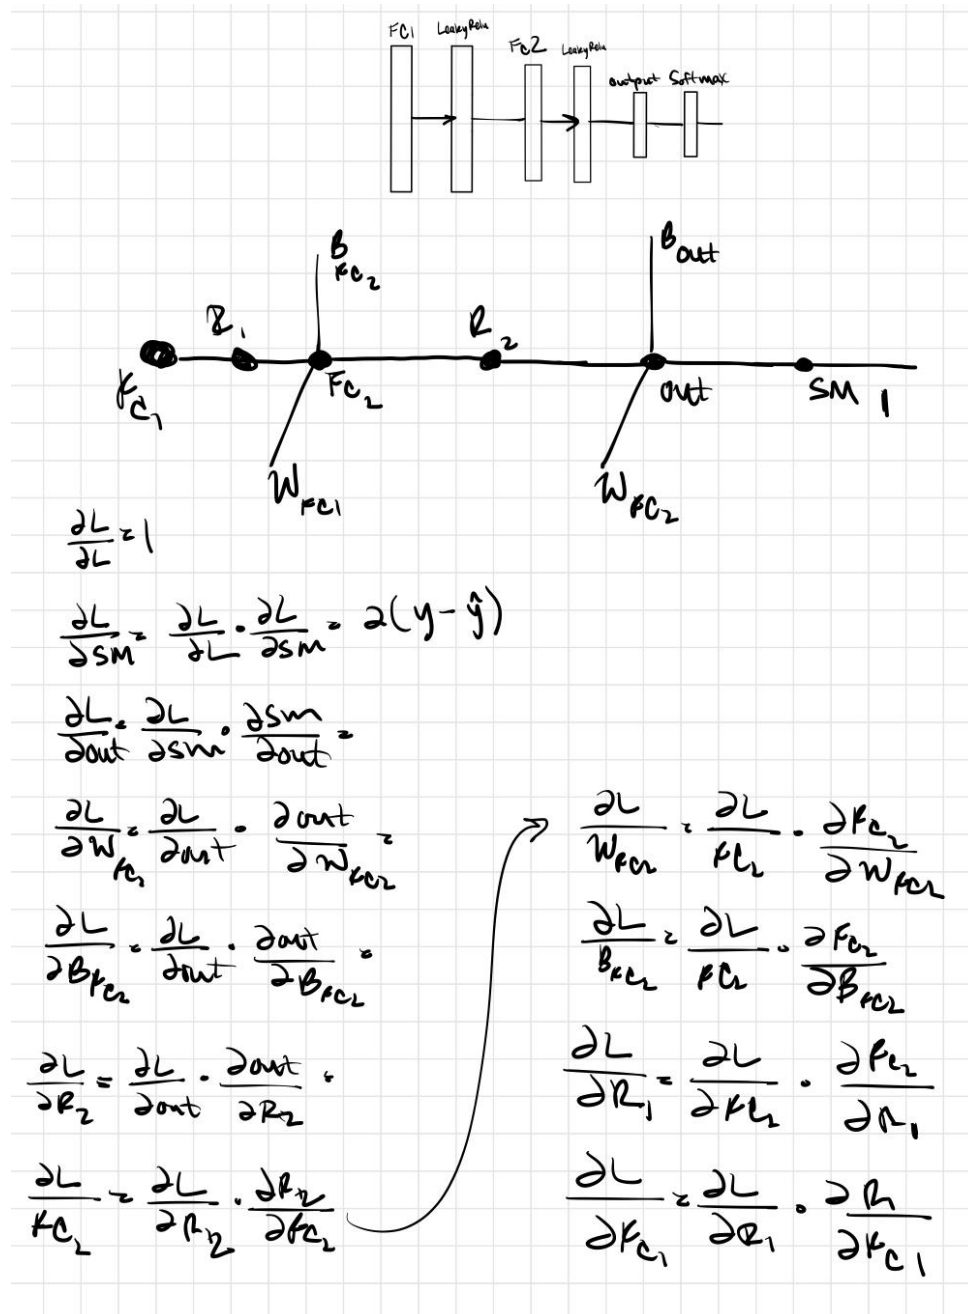 FC1 LeakyRelu Fc2 LeakyRelu output Softmax
B_FC2 B_out
R_1 R_2
FC_1 FC_2 out SM 1
W_FC1 W_FC2
∂L/∂L = 1
∂L/∂SM = ∂L/∂L · ∂L/∂SM = 2(y - ŷ)
∂L/∂out = ∂L/∂sm · ∂sm/∂out =
∂L/∂W_FC2 = ∂L/∂out · ∂out/∂W_FC2 =
∂L/∂B_FC2 = ∂L/∂out · ∂out/∂B_FC2 =
∂L/∂R_2 = ∂L/∂out · ∂out/∂R_2 =
∂L/FC_2 = ∂L/∂R_2 · ∂R_2/∂FC_2
∂L/W_FC2 = ∂L/FC_2 · ∂FC_2/∂W_FC2
∂L/B_FC2 = ∂L/FC_2 · ∂FC_2/∂B_FC2
∂L/∂R_1 = ∂L/∂FC_2 · ∂FC_2/∂R_1
∂L/∂FC_1 = ∂L/∂R_1 · ∂R/∂FC_1